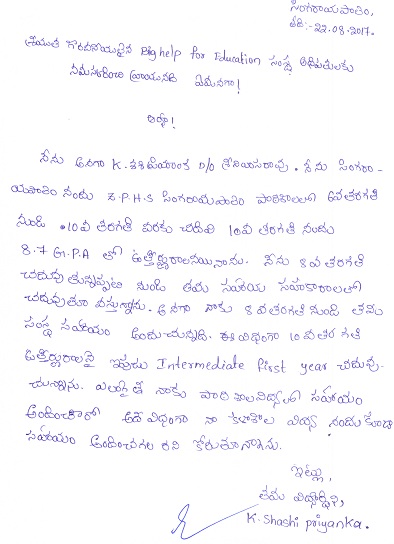 సింగరాయపాలెం,
తేది:-22.08.2017.
శ్రీయుత గౌరవనీయులైన Big help for Education సంస్థ అధిపతులకు
నమస్కరించి వ్రాయునది ఏమనగా!
అర్యా!
నేను అనగా K. శశిప్రియాంక D/o శ్రీనివాసరావు. నేను సింగరా-
యపాలెం నందు Z.P.H.S సింగరాయపాలెం పాఠశాలలో 6వ తరగతి
నుండి 10వ తరగతి వరకు చదివి 10వ తరగతి నందు
8.7 G.P.A తో ఉత్తీర్ణురాలనయినాను. నేను 8వ తరగతి
చదువుతున్నప్పటి నుండి తమ సహాయ సహకారాలతో
చదువుతూ వస్తున్నాను. అనగా నాకు 8వతరగతి నుండి తమ
సంస్థ సహాయం అందుచున్నది. ఈ విధంగా 10వతరగతి
ఉత్తీర్ణురాలనై ఇప్పుడు Intermediate first year చదువు-
చున్నాను. ఎలాగైతే నాకు పాఠశాలవిద్యలో సహాయం
అందించారో అదే విధంగా నా కళాశాల విద్య నందుకూడా
సహాయం అందించగలరని కోరుతూన్నాను.
ఇట్లు,
తమ విద్యార్థిని,
K-Shashi priyanka.